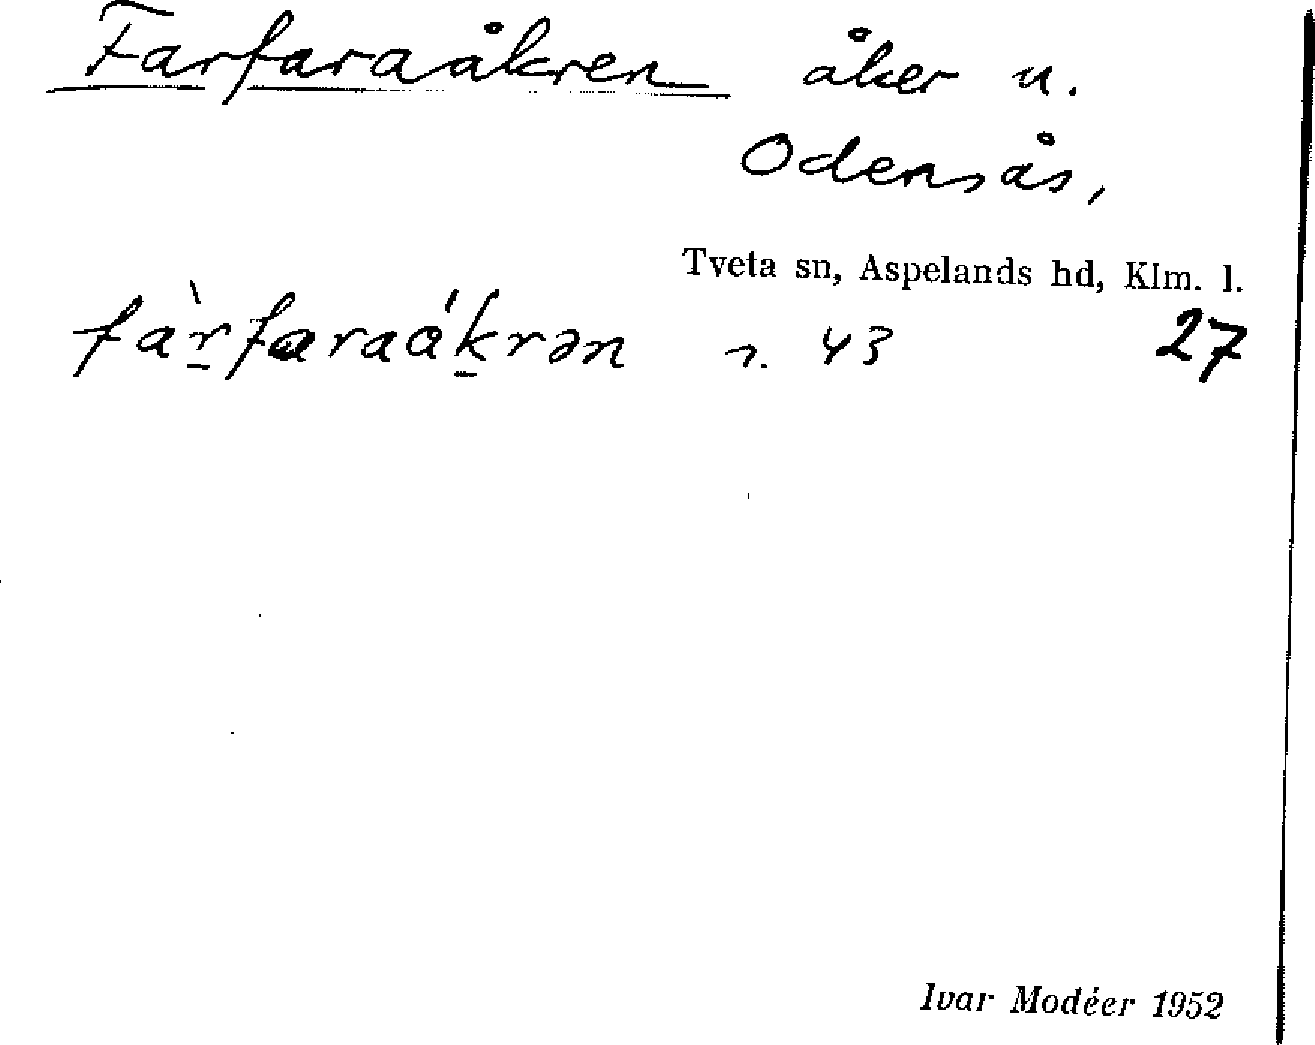 Farfaraåkren åker u.
Odensås,
Tveta sn, Aspelands hd, Klm. l.
fàr̠faraåʹk̠rən n. 43 27
Ivar Modéer 1952